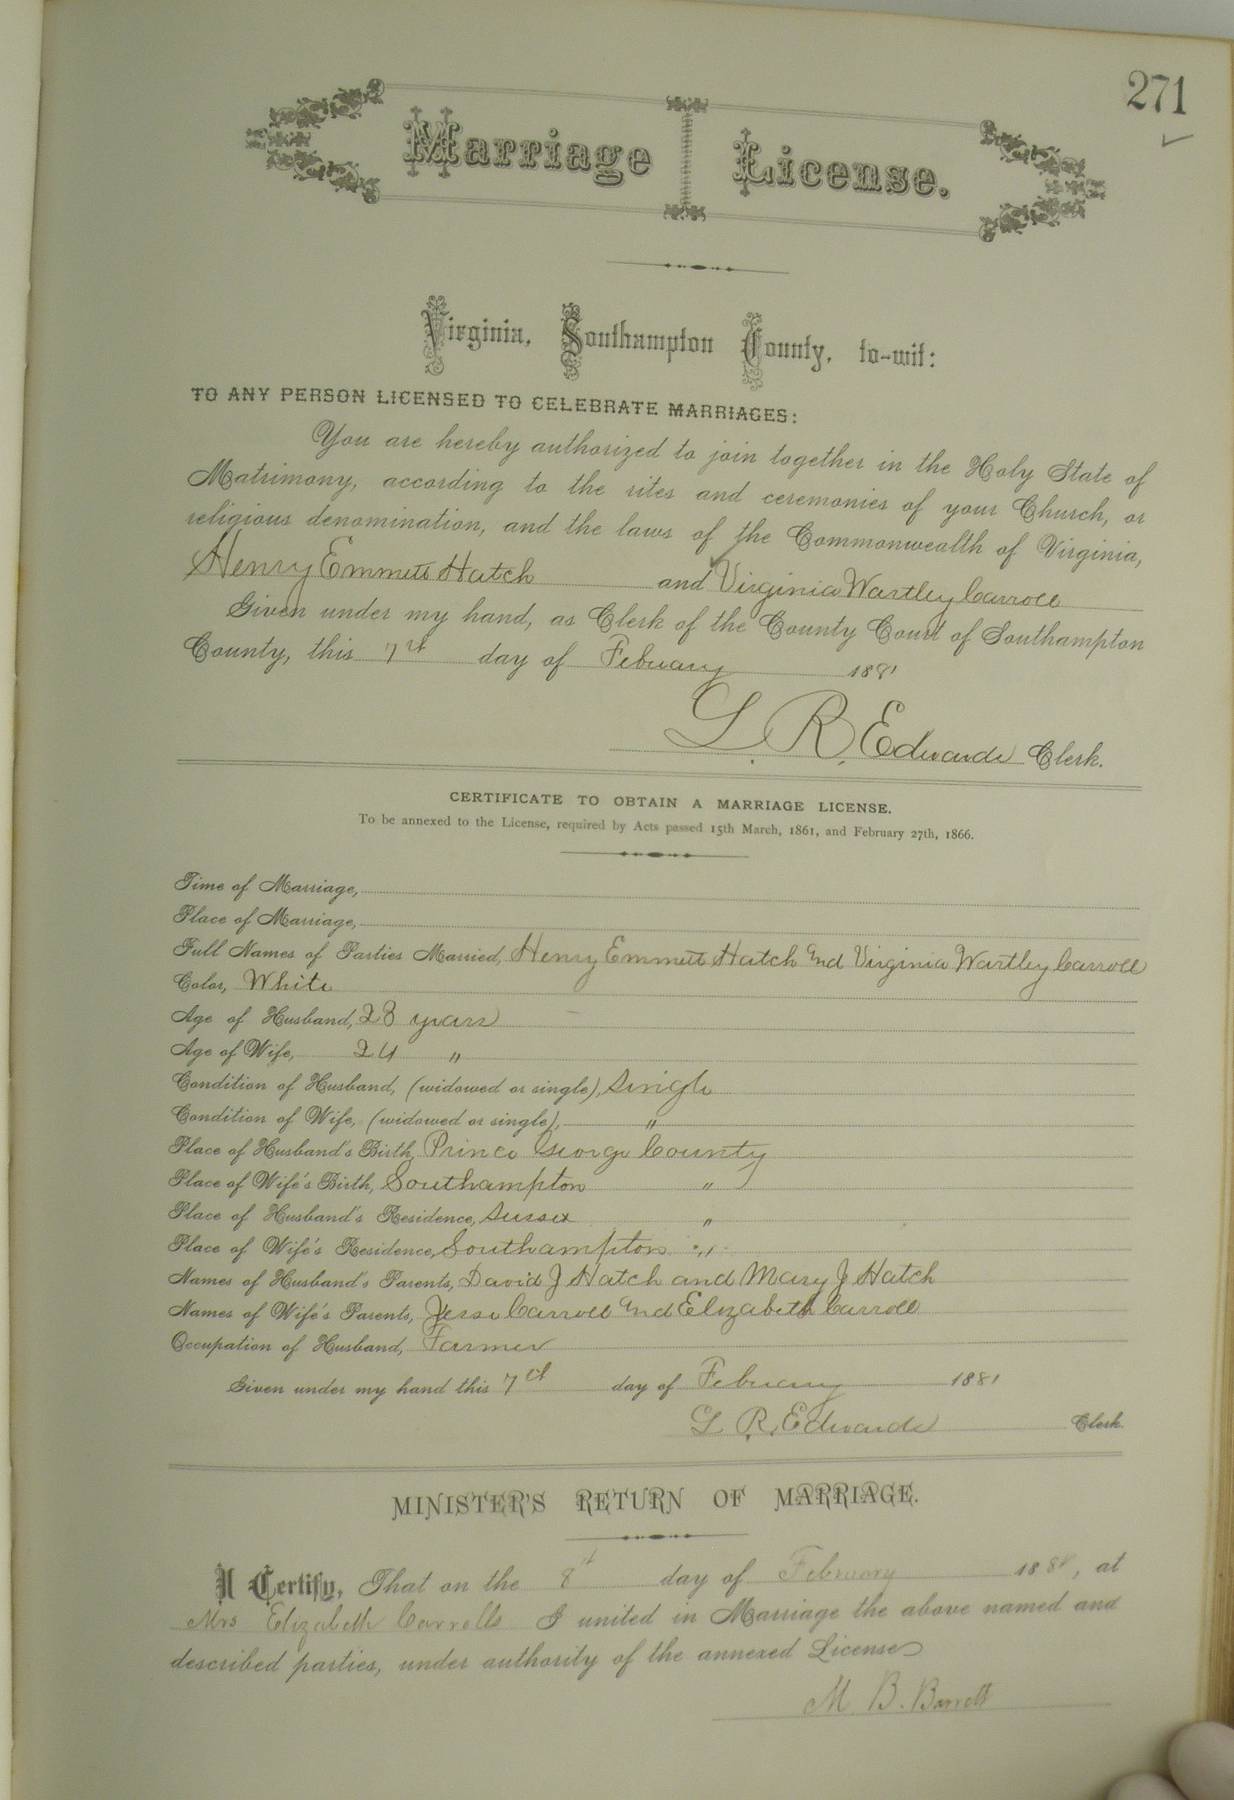 271
Marriage License.
Virginia, Southampton County, to-wit:
TO ANY PERSON LICENSED TO CELEBRATE MARRIAGES:
You are hereby authorized to join together in the Holy State of
Matrimony, according to the rites and ceremonies of your Church, or
religious denomination, and the laws of the Commonwealth of Virginia,
Henry Emmett Hatch and Virginia Wartley Carroll
Given under my hand, as Clerk of the County Court of Southampton
County, this 7th day of February 1881
L. R. Edwards Clerk.
CERTIFICATE TO OBTAIN A MARRIAGE LICENSE.
To be annexed to the License, required by Acts passed 15th March, 1861, and February 27th, 1866.
Time of Marriage,
Place of Marriage,
Full Names of Parties Married, Henry Emmett Hatch and Virginia Wartley Carroll
Color, White
Age of Husband, 28 years
Age of Wife, 24 "
Condition of Husband, (widowed or single), Single
Condition of Wife, (widowed or single), "
Place of Husband's Birth, Prince George County
Place of Wife's Birth, Southampton "
Place of Husband's Residence, Sussex "
Place of Wife's Residence, Southampton "
Names of Husband's Parents, David J Hatch and Mary J Hatch
Names of Wife's Parents, Jesse Carroll and Elizabeth Carroll
Occupation of Husband, Farmer
Given under my hand this 7th day of February 1881
L. R. Edwards Clerk.
MINISTER'S RETURN OF MARRIAGE.
I Certify, That on the 8th day of February 1881, at
Mrs Elizabeth Carrolls I united in Marriage the above named and
described parties, under authority of the annexed License
M. B. Barrett